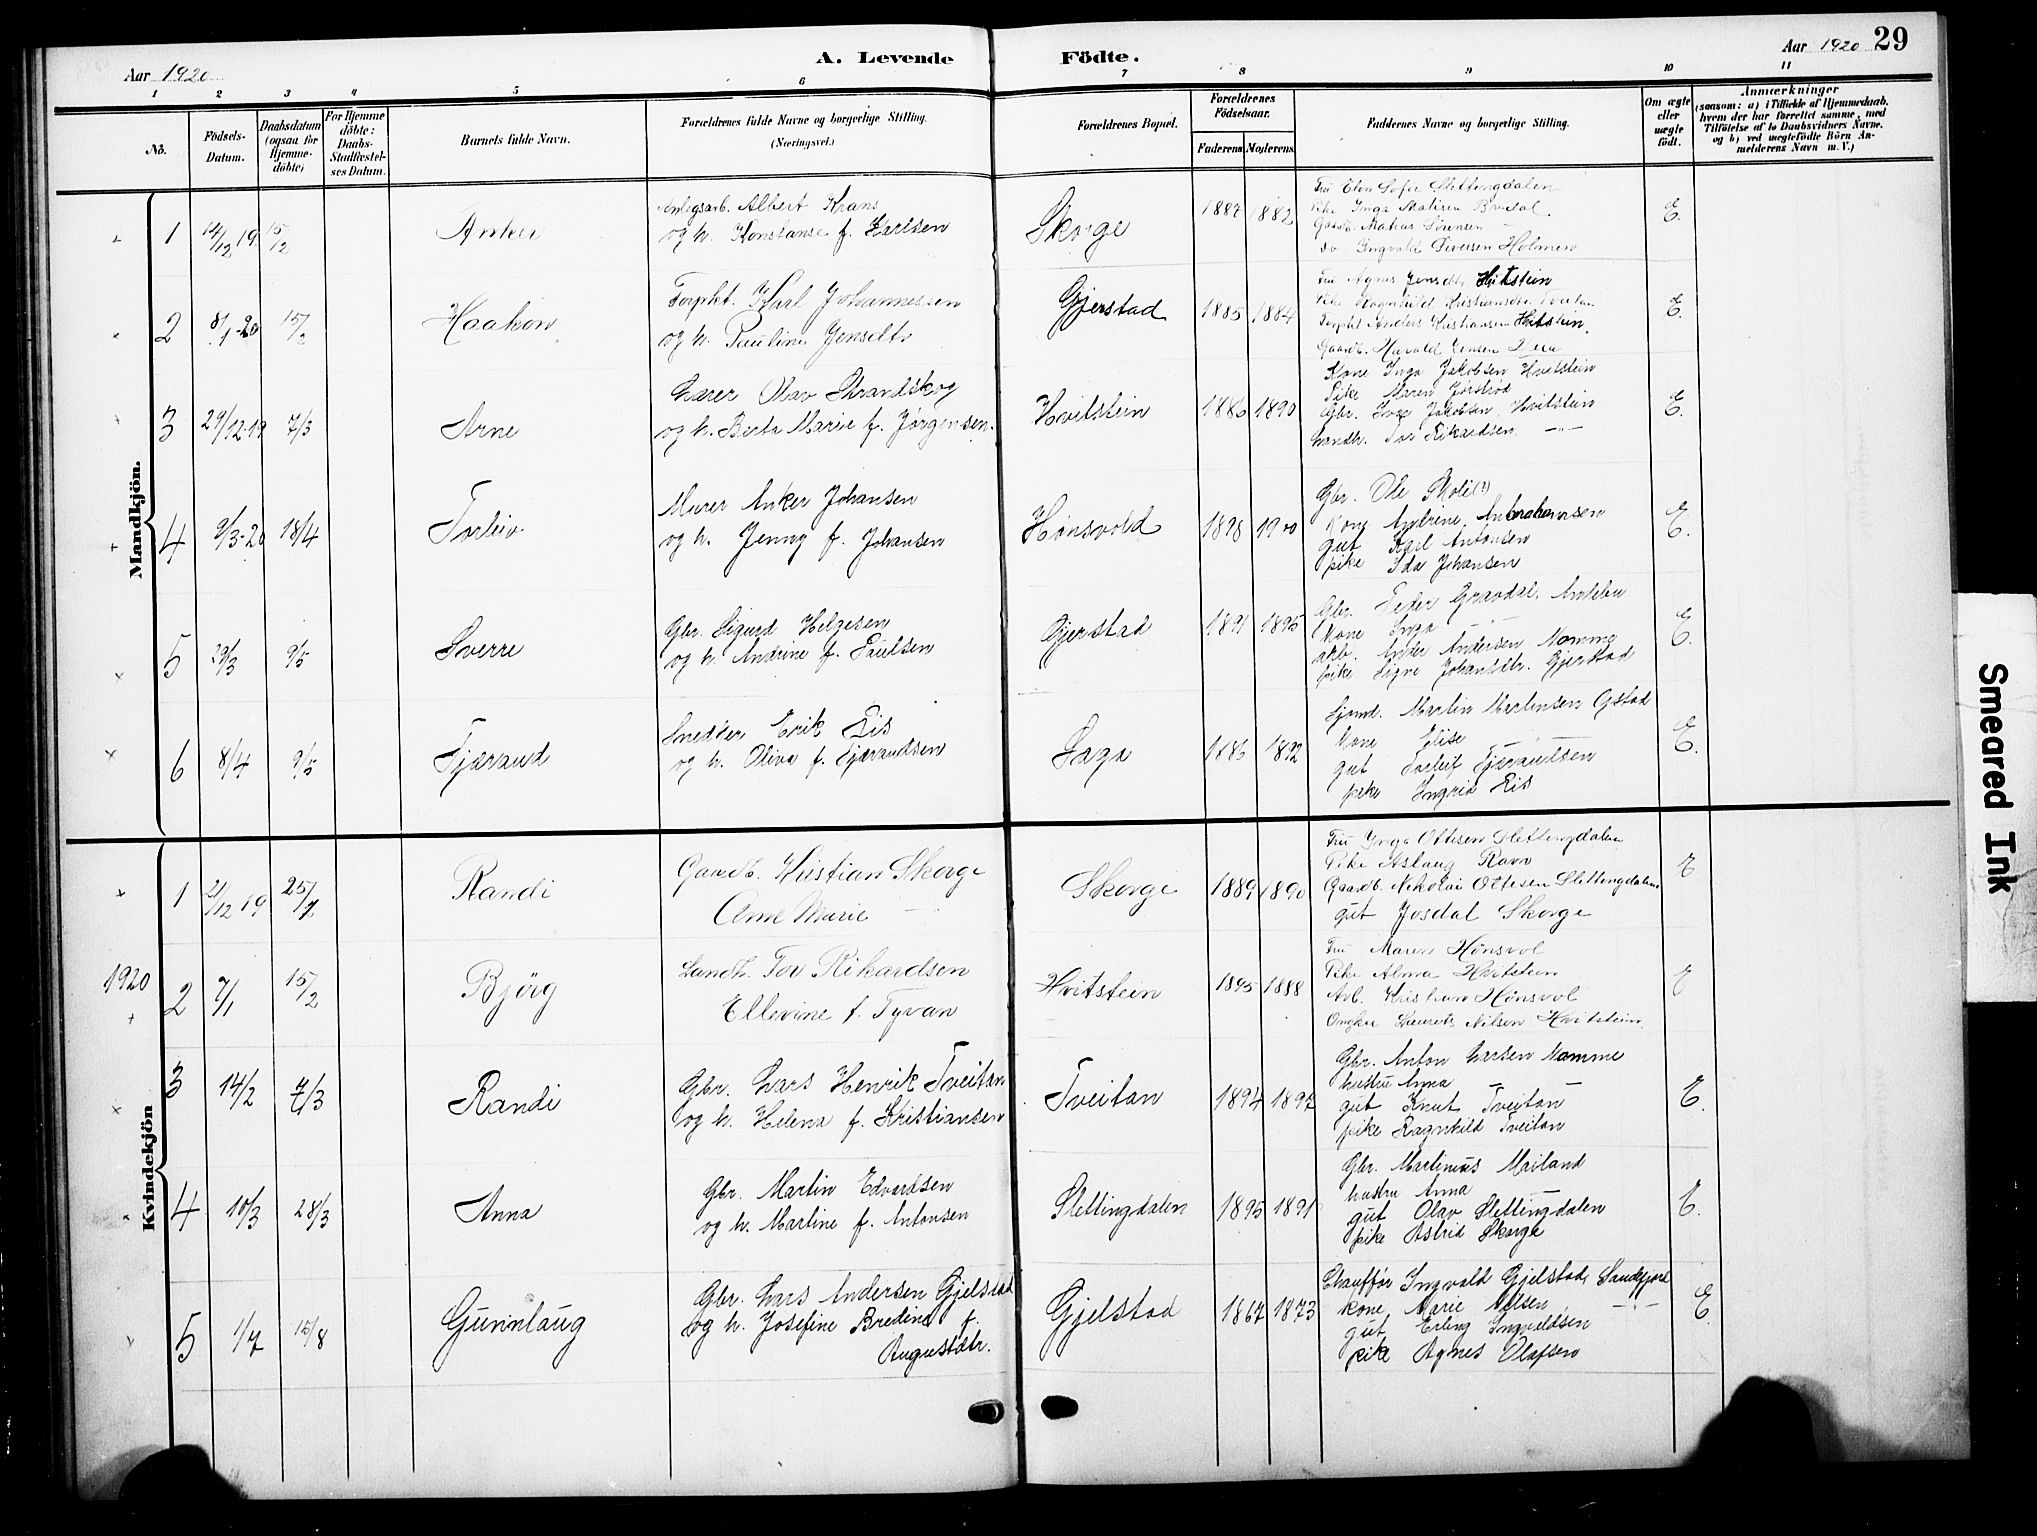 Aar 1920
A. Levende Födte.
Aar 1920 29
1 2 3 4 5 6 7 8 9 10 11
No.
Födsels-Datum.
Daabsdatum (ogsaa for Hjemme-döbte)
For Hjemme döbte: Daabs-Stadfæstel-ses Datum.
Barnets fulde Navn.
Forældrenes fulde Navne og borgerlige Stilling.
(Næringsvei.)
Forældrenes Bopæl.
Forældrenes Födselsaar.
Faderens Moderens
Faddernes Navne og borgerlige Stilling.
Om ægte eller uægte födt.
Anmærkninger
(saasom: a) i Tilfælde af Hjemmedaab.
hvem der har forrettet samme, med
Tilföielse af to Daabsvidners Navne.
og b) ved uægtefödte Börn An-
melderens Navn m. V.)
Mandkjön.
1 14/12 19 15/2 Anker
Anlegsarb. Albert Krans
og h. Konstanse f. Karlsen
Skorge 1887 1882
Fru Elen Sofie Slettingdalen
Pike Inga
Gaardb. Sörensen
do Ingvald Siversen Holmen
E.
2 8/1-20 15/2 Haakon
Karl Johannessen
og h. Pauline Jensdtr
Gjerstad 1885 1884
Fru Agnes Jensdtr Hvitstein
Pike Ragnhild Kristiansdtr. Tveitan
Anders Kristiansen Hvitstein.
Gaardb. Harald Jensen
E.
3 29/12-19 7/3 Arne
Lærer Olav Strandskog
og h. Berta Marie f. Jørgensen.
Hvitstein 1886 1890
Kone Inga Jakobsen Hvitstein
Pike Maren
Gbr. Jakobsen Hvitstein
Landh. Tor Rikardsen —"—
E.
4 9/3-20 18/4 Torleiv
Murer Anker Johansen
og h. Jenny f. Johansen
Hønsvold 1898 1900
Gbr. Ole Skoli(?)
Kone Andrine Abrahamsen
gut Karl Antonsen
pike Ida Johansen
E.
5 29/3 9/5 Sverre
Gbr. Sigurd Helgesen
og h. Andrine f. Paulsen
Gjerstad 1891 1895
Gbr. Peder Gravdal, Andebu
Kone Inga
arb. Andersen Namme
pike Signe Johansdtr. Gjerstad
E.
6 8/4 9/5 Tjærand
Snedker Erik Eis
og h. Oliva f. Tjærandsen
Saga 1886 1892
Sjømd. Martin Martinsen
Kone Elise
gut Torleif Tjærandsen
pike Ingrid Eis
E.
Kvindekjön
1920
1 21/12 19 25/7 Randi
Gaardb. Kristian Skorge
Ane Marie —
Skorge 1889 1890
Fru Inga Ottesen Slettingdalen
Pike Aslaug Ravn
Gaardb. Nikolai Ottesen Slettingdalen
gut Josdal Skorge
E
2 7/1 15/2 Björg
Landh. Tor Rikardsen
Ellevine f. Tyvan
Hvitstein 1895 1888
Fru Maren Hönsvol
Pike Alma Hvitstein
Arb. Kristian Hönsvol
Laurits Nilsen Hvitstein.
E
3 14/2 7/3 Randi
Gbr. Lars Henrik Tveitan
og h. Helena f. Kristiansen
Tveitan 1894 1897
Gbr. Anton Larsen Namme
hustru Anna — —
gut Knut Tveitan
pike Ragnhild Tveitan
E.
4 10/3 28/3 Anna
Gbr. Martin Edvardsen
og h. Martine f. Antonsen
Slettingdalen 1895 1891
Gbr. Martinius Mailand
hustru Anna —
gut Olav Slettingdalen
pike Astrid Skorge
E.
5 1/7 15/8 Gunnlaug
Gbr. Lars Andersen Gjelstad
og h. Josefine Bredine f.
Augustdtr.
Gjelstad 1867 1873
Chauffør Ingvald Gjelstad, Sandefjord
Kone Marie Nilsen —"—
gut Erling Ingvaldsen
pike Agnes Olafsen
E.
Smeared Ink